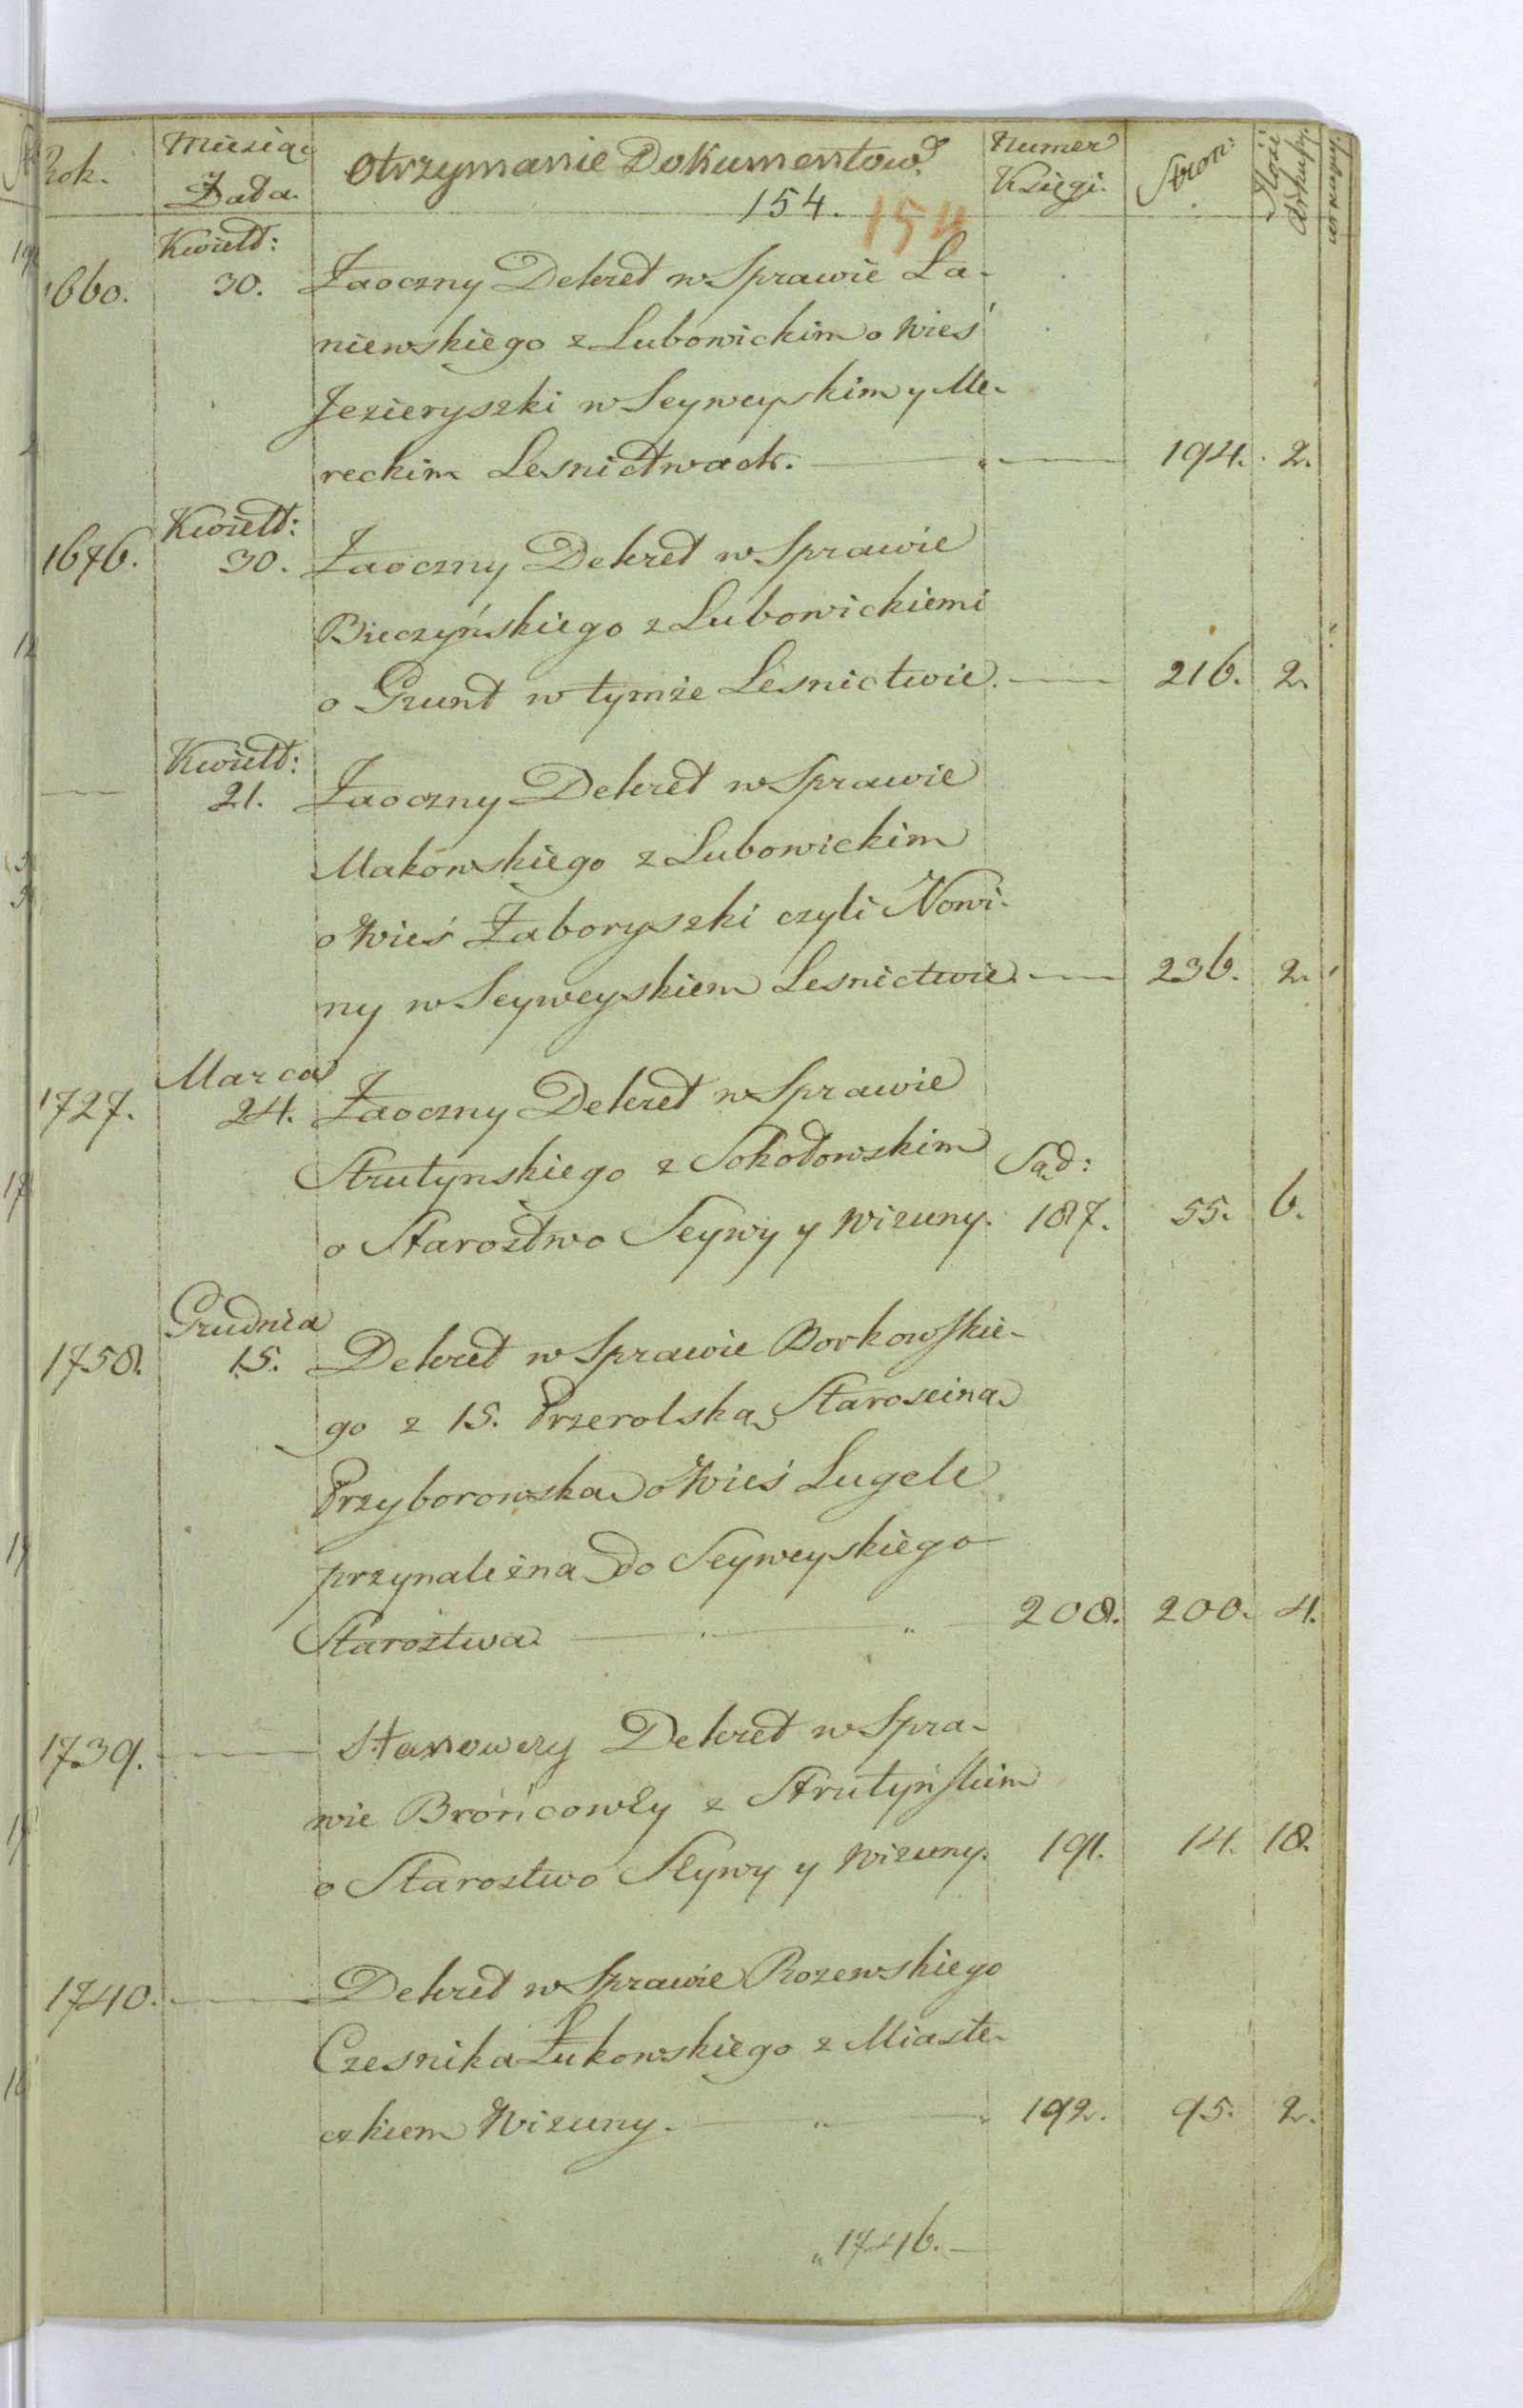 Rok. Miesiąc Data. Otrzymanie Dokumentow Numer Księgi. Stron: Ilosć Arkuszy
154. 154
Kwiett:
1660. 30. Zaoczny Dekret w Sprawie La-
niewskiego z Lubowickim o Wieś
Jezieryszki w Seyweyskim y Me-
reckim Lesnictwach. 194. 2.
Kwiett:
1676. 30. Zaoczny Dekret w Sprawie
Bieczyńskiego z Lubowickiemi
o Grunt w tymże Lesnictwie. 216. 2.
Kwiett:
21. Zaoczny Dekret w Sprawie
Makowskiego z Lubowickim
o Wieś Zaboryszki czyli Nowi-
ny w Seyweyskiem Lesnictwie. 236. 2.
Marca
1727. 24. Zaoczny Dekret w Sprawie
Strutynskiego z Sokołowskim Sąd:
o Starostwo Seywy y Wizuny. 187. 55. 6.
Grudnia
1758. 15. Dekret w Sprawie Borkowskie-
go z 15. Przerolską Staroscina
Przyborowska o Wieś Lugele
przynależna do Seyweyskiego
Starostwa. 208. 200. 4.
1739. Stanowczy Dekret w Spra-
wie Brońcowły z Strutyńskim
o Starostwo Seywy y Wizuny. 191. 14. 18.
1740. Dekret w Sprawie Rozewskiego
Czesnika Łukowskiego z Miaste-
czkiem Wizuny. 192. 95. 2.
„1746.